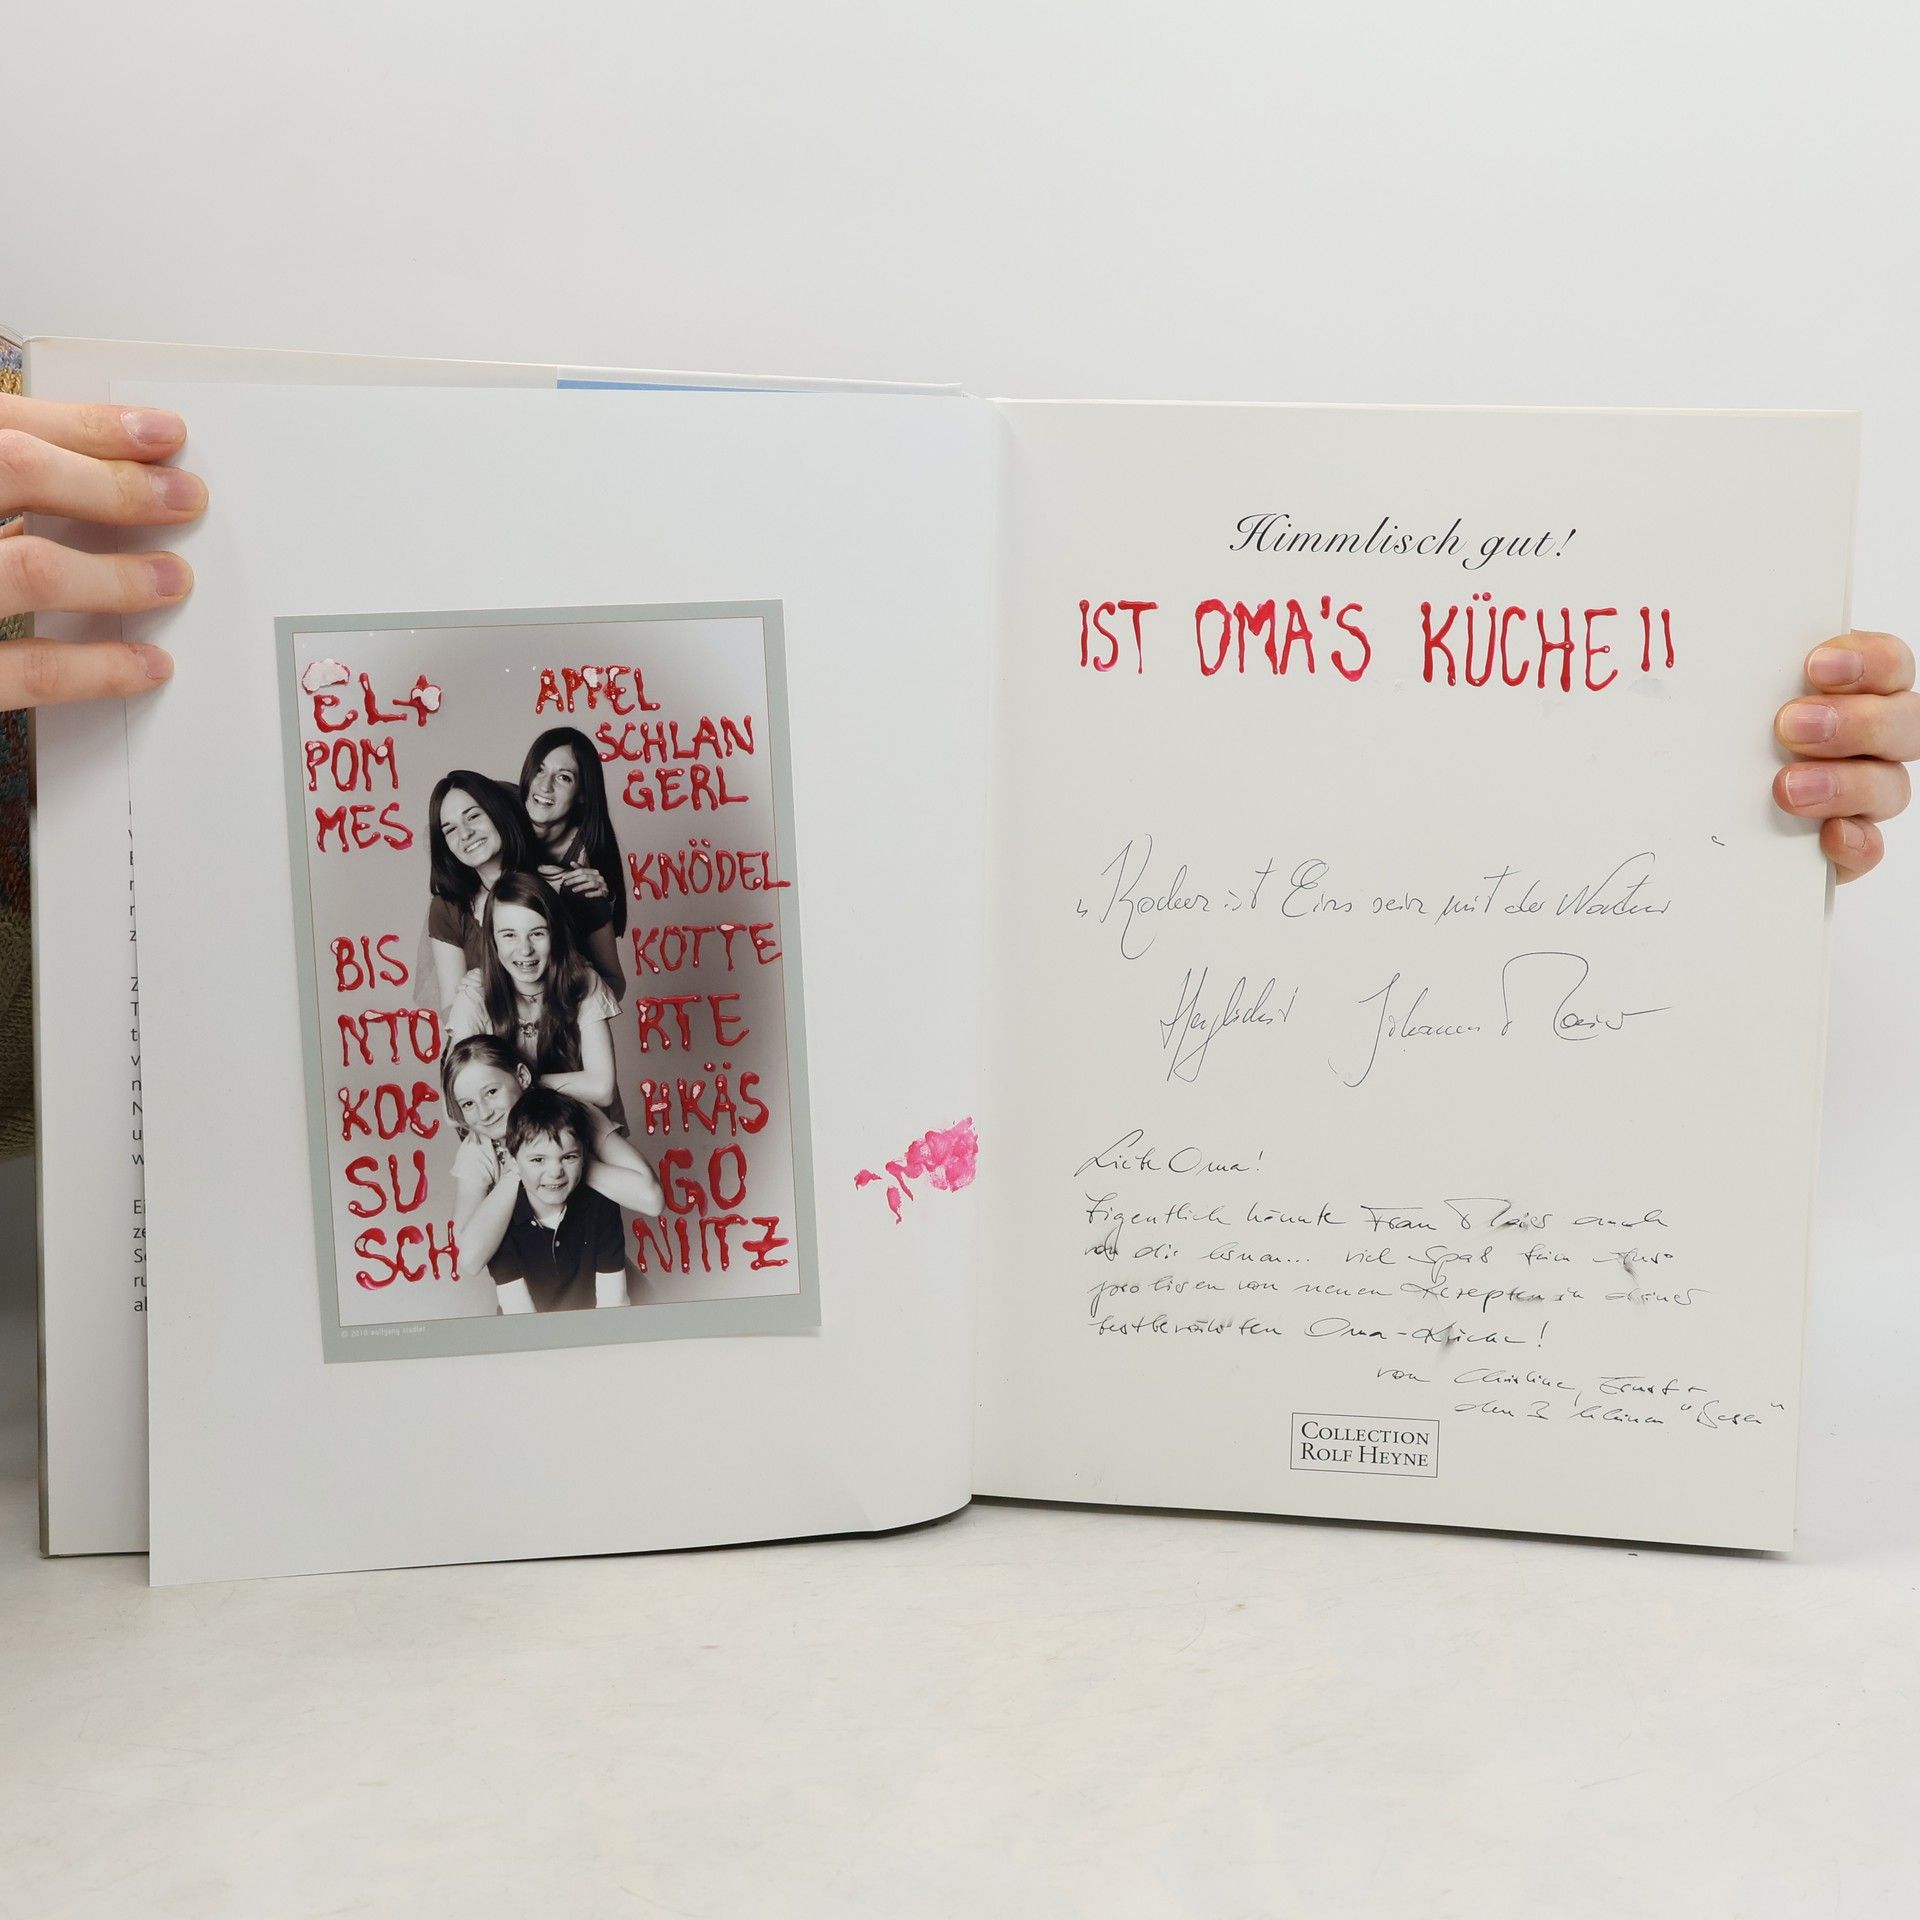 EL+
POM
MES
BIS
NTO
KOC
SU
SCH
APFEL
SCHLAN
GERL
KNÖDEL
KOTTE
RTE
HKÄS
GO
NIITZ
© 2010 wolfgang stadler
Himmlisch gut!
IST OMA'S KÜCHE!!
"Kochen ist Eins sein mit der Natur"
Herzlichst Johanna Maier
Liebe Oma!
Eigentlich könnte Frau Maier auch
von dir lernen... viel Spaß beim Aus-
probieren von neuen Rezepten in deiner
bestbewährten Oma-Küche!
von Christine, Ernst +
den 3 kleinen
COLLECTION
ROLF HEYNE